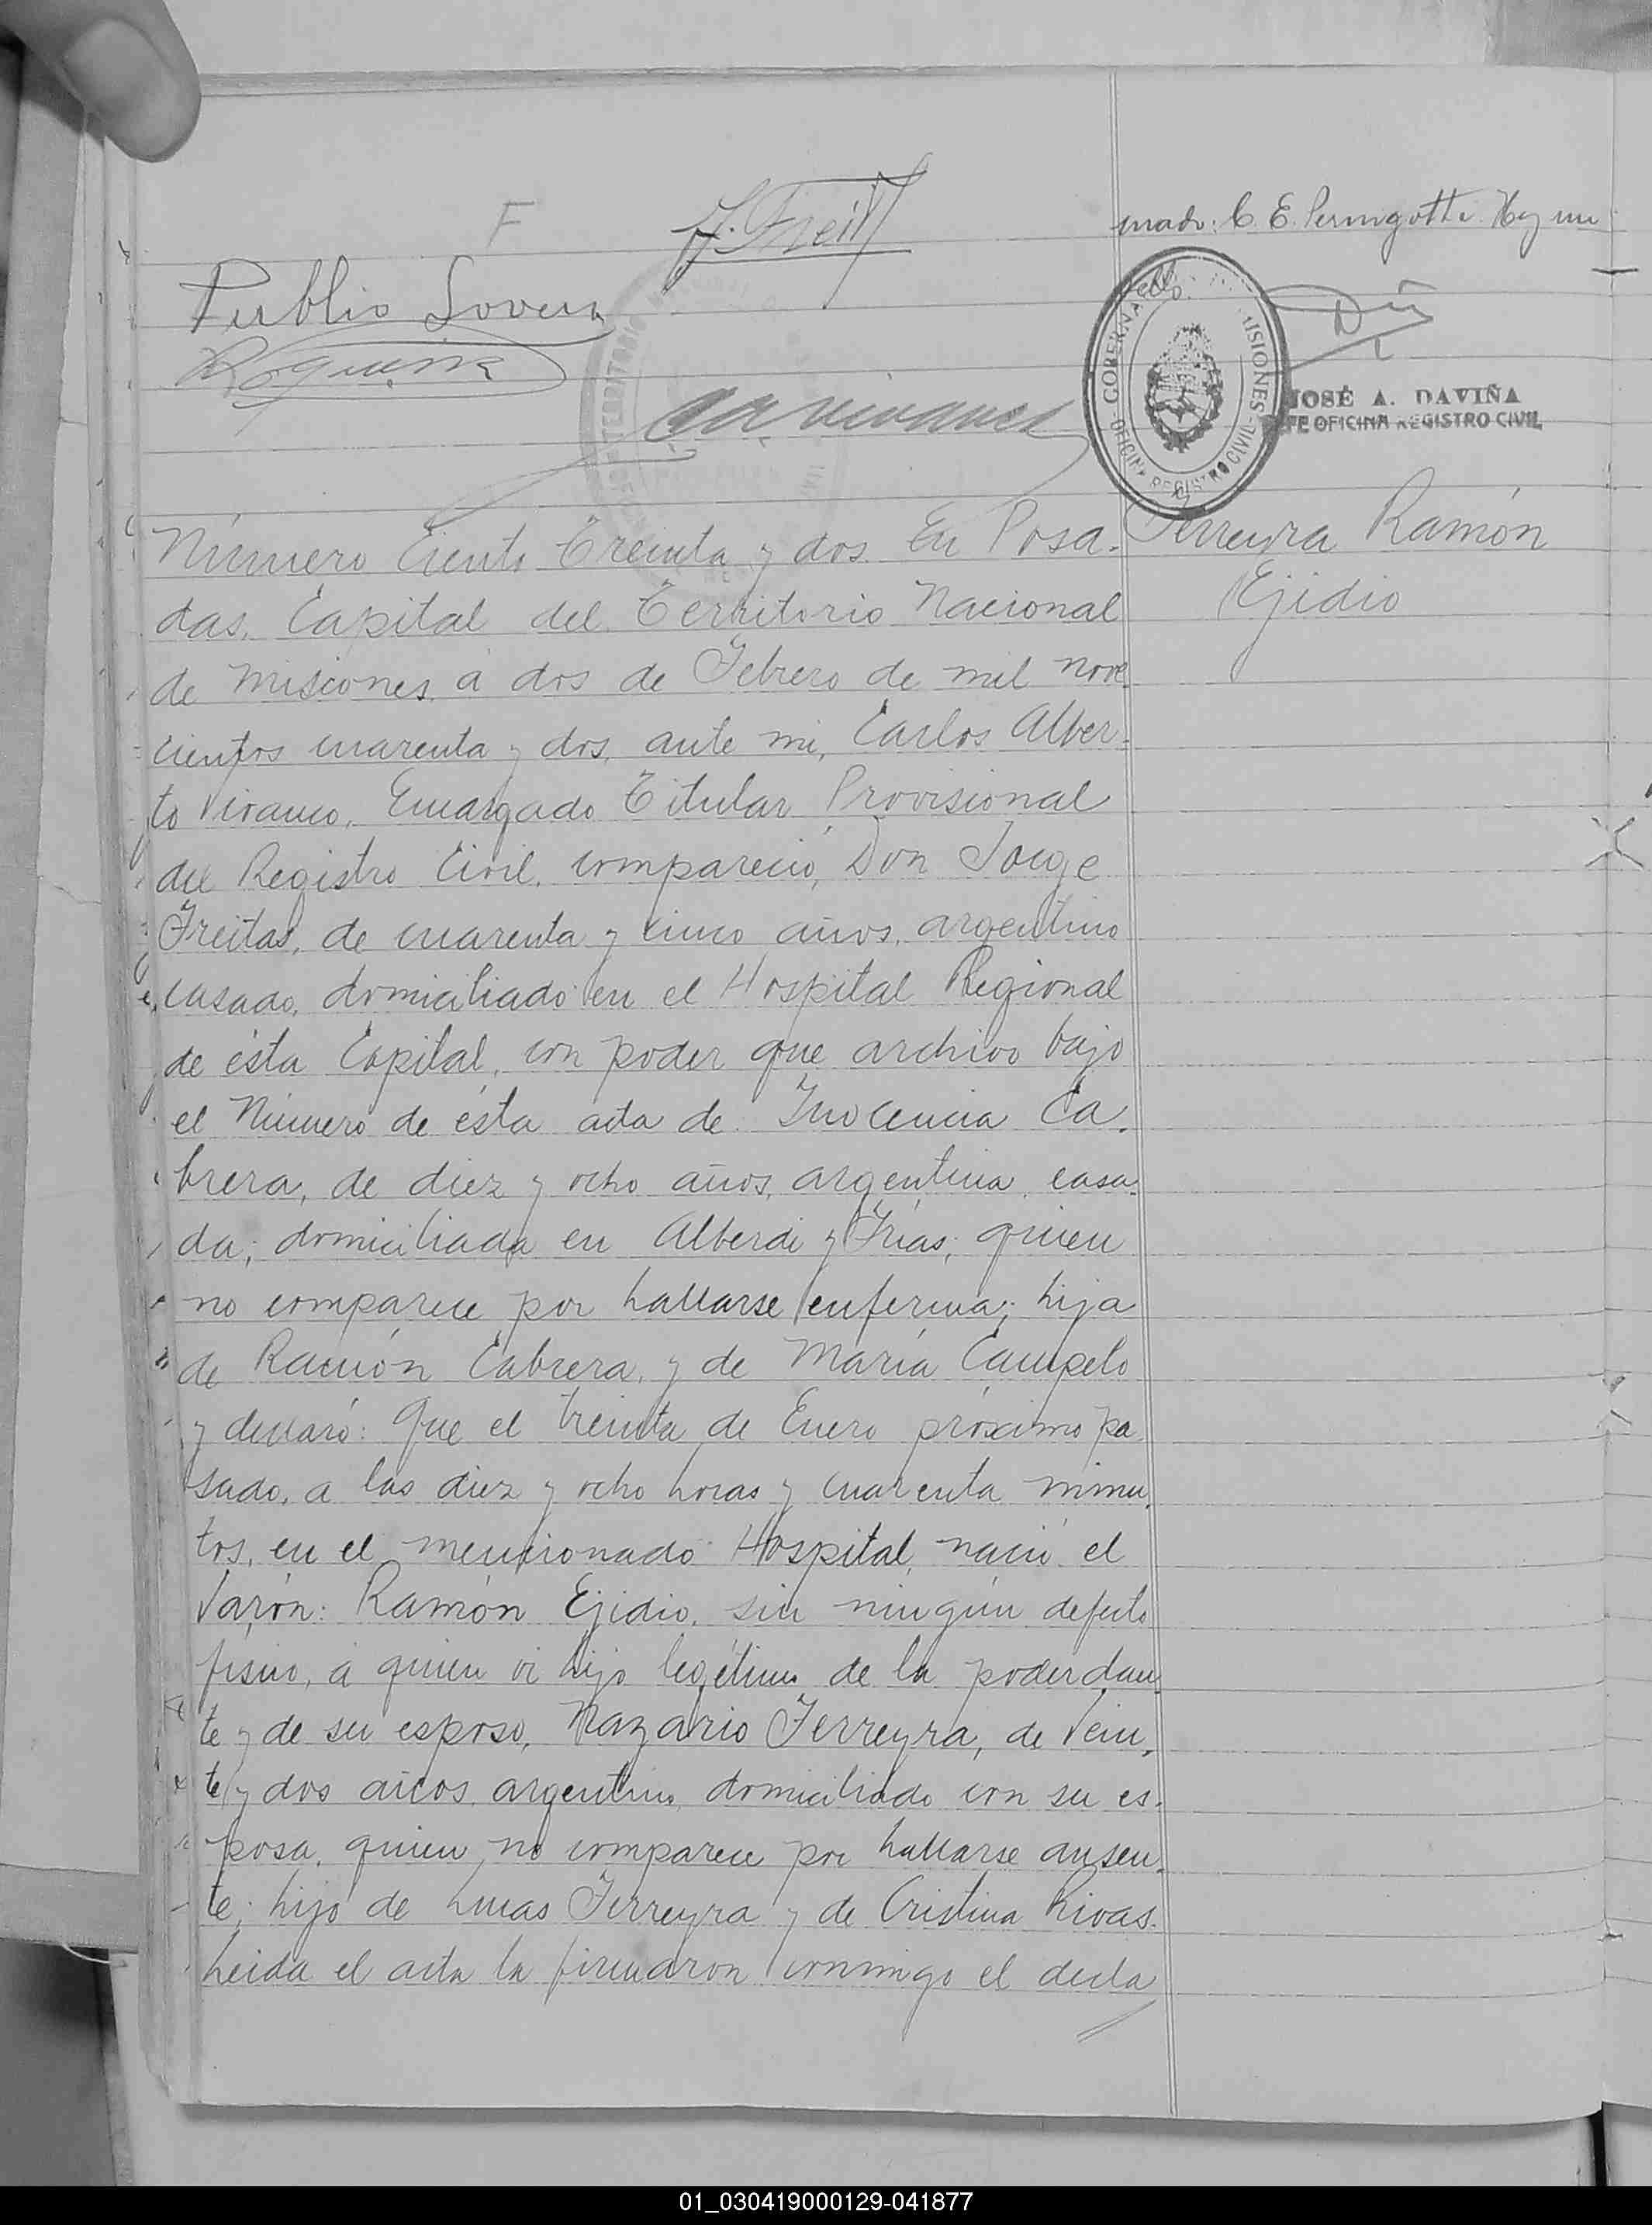 F
J. Freit
mado: C. E. Pernigotti. Hay un
Publio Lovera
JOSÉ A. DAVIÑA
JEFE OFICINA REGISTRO CIVIL
GOBERNACION MISIONES
OFICINA REGISTRO CIVIL
Ferreyra Ramón
Ejidio
Número Ciento Treinta y dos. En Posa-
das, Capital del Territorio Nacional
de Misiones, a dos de Febrero de mil nove
cientos cuarenta y dos, ante mi, Carlos Alber-
to Vivanco, Encargado Titular Provisional
del Registro Civil, compareció, Don Jorge
Freitas, de cuarenta y cinco años, argentino
casado, domiciliado en el Hospital Regional
de ésta Capital, con poder que archivo bajo
el Número de ésta acta de Inocencia Ca-
brera, de diez y ocho años, argentina, casa-
da; domiciliada en Alberdi y Frías; quien
no comparece por hallarse enferma; hija
de Ramón Cabrera, y de María Campelo
y declaró: Que el treinta de Enero próximo pa
sado, a las diez y ocho horas y cuarenta minu-
tos, en el mencionado Hospital, nació el
Varón: Ramón Ejidio, sin ningún defecto
físico, a quien vi hijo legítimo de la poderdan-
te y de su esposo, Nazario Ferreyra, de Vein-
te y dos años, argentino, domiciliado con su es-
posa, quien no comparece por hallarse ausen-
te; hijo de Lucas Ferreyra y de Cristina Rivas.
Leida el acta la firmaron conmigo el decla
01_030419000129-041877